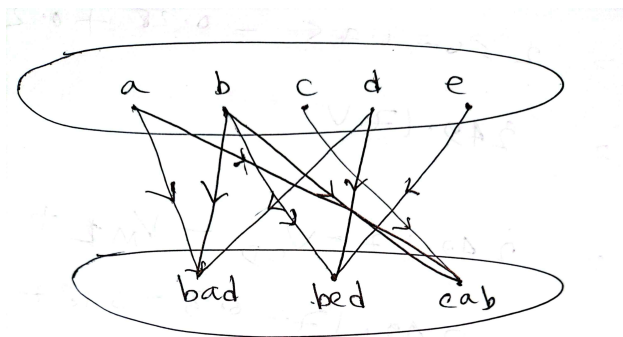 a b c d e
bad bed cab